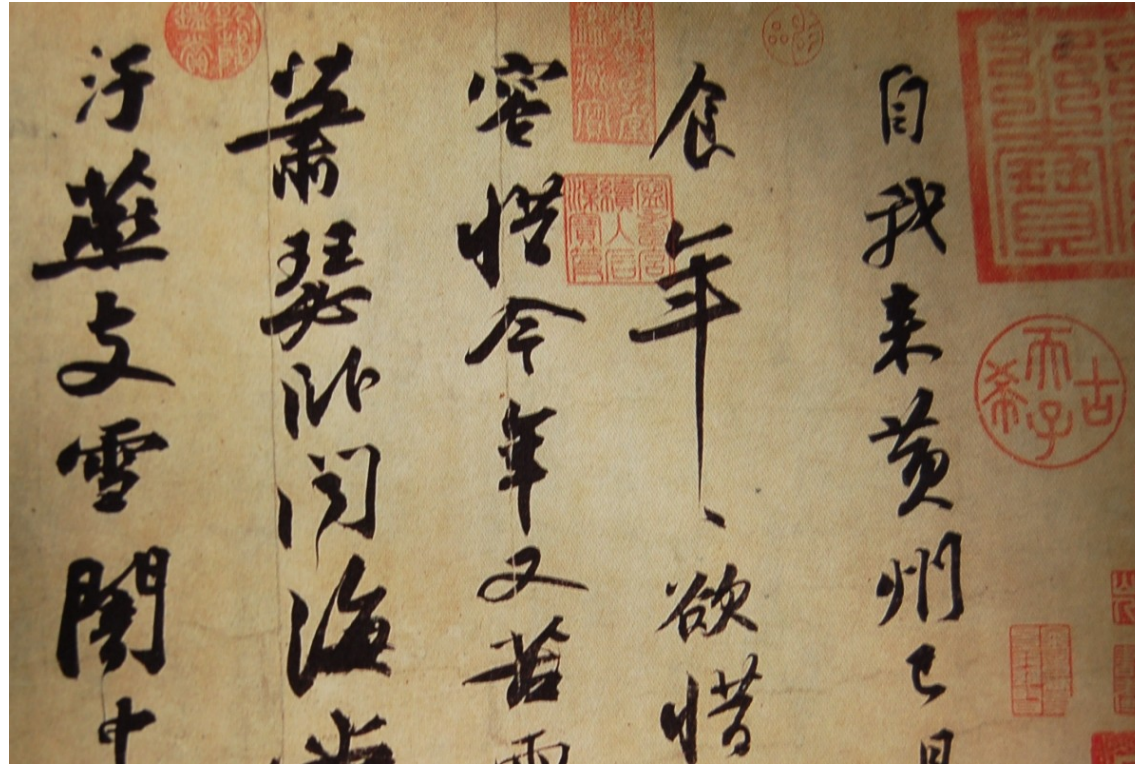 自我来黄州已
食年、欲惜
容惜今年又苦雨
蕭瑟卧闻海
汙燕支雪闇中
古希天子